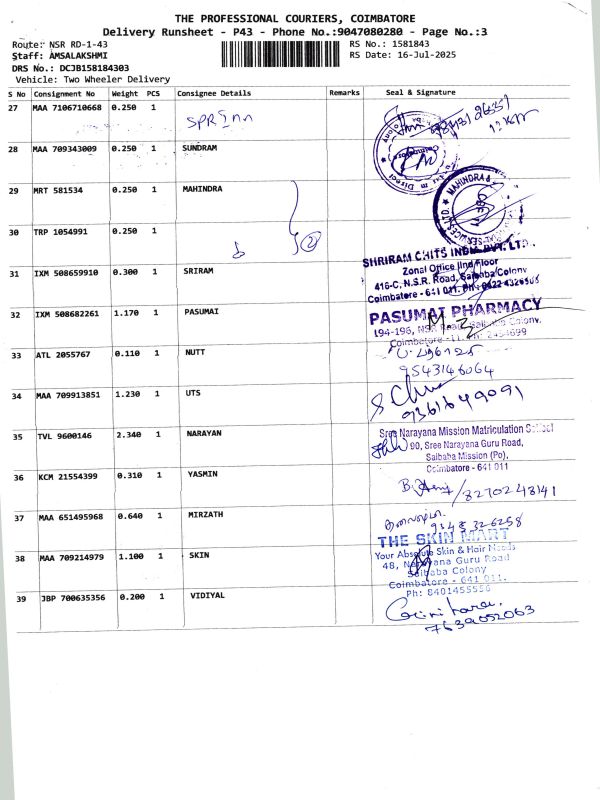 THE PROFESSIONAL COURIERS, COIMBATORE
Delivery Runsheet - P43 - Phone No.:9047080280 - Page No.:3
Route: NSR RD-1-43 RS No.: 1581843
Staff: AMSALAKSHMI RS Date: 16-Jul-2025
DRS No.: DCJB158184303
Vehicle: Two Wheeler Delivery
S No Consignment No Weight PCS Consignee Details Remarks Seal & Signature
27 MAA 7106710668 0.250 1
28 MAA 709343009 0.250 1 SUNDRAM
29 MRT 581534 0.250 1 MAHINDRA
MAHINDRA &
30 TRP 1054991 0.250 1 2
31 IXM 508659910 0.300 1 SRIRAM
SHRIRAM CHITS INDIA PVT. LTD.
Zonal Office IInd Floor
416-C, N.S.R. Road, Saibaba Colony
Coimbatore - 641 011. Ph: 0422 4326508
32 IXM 508682261 1.170 1 PASUMAI
PASUMAI PHARMACY
194-196, NSR Road, Saibaba Colony.
33 ATL 2055767 0.110 1 NUTT
9543146064
34 MAA 709913851 1.230 1 UTS
9361649091
35 TVL 9600146 2.340 1 NARAYAN
Sree Narayana Mission Matriculation School
90, Sree Narayana Guru Road,
Saibaba Mission (Po),
Coimbatore - 641 011
36 KCM 21554399 0.310 1 YASMIN
8270248141
37 MAA 651495968 0.640 1 MIRZATH
38 MAA 709214979 1.100 1 SKIN
THE SKIN MART
Your Absolute Skin & Hair Needs
48, Narayana Guru Road
Saibaba Colony
Coimbatore - 641 011.
Ph: 8401455556
39 JBP 700635356 0.200 1 VIDIYAL
7639052063